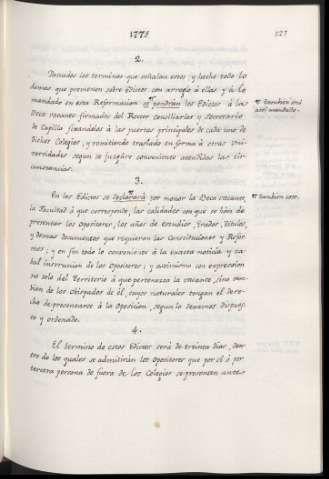 1771
227
2.
Pasados los terminos que señalan estos, y hecho todo lo
demas que previenen sobre Edictos con arreglo a ellas y a lo
mandado en esta Reformacion se pondràn los Edictos à las
Becas vacantes firmados del Rector Consiliarios y Secretario
de Capilla fixandolos à las puertas principales de cada uno de
Dichos Colegios, y remitiendo traslado en forma à otras Uni-
versidades segun se juzgàre conveniente atendidas las cir-
cunstancias.
¶ tambien ...
3.
En los Edictos se declararà por menor la Beca vacante,
la facultad à que corresponde, las calidades con que se han de
presentar los Opositores, los años de estudios, Grados, Titulos,
y demas documentos que requieran las Constituciones y Refor-
mas; y en fin todo lo conveniente à la exacta noticia y ca-
bal instruccion de los Opositores; y asimismo con expresion
no solo del Territorio à que pertenezca la vacante, sino tam-
bien de los Obispados de èl, cuyos naturales tengan el dere-
cho de presentarse à la Oposicion, segun lo devamos dispues-
to y ordenado.
¶ tambien esto.
4.
El termino de estos Edictos serà de treinta dias, den-
tro de los quales se admitiràn los Opositores que por sì ò por
tercera persona de fuera de los Colegios se presenten ante